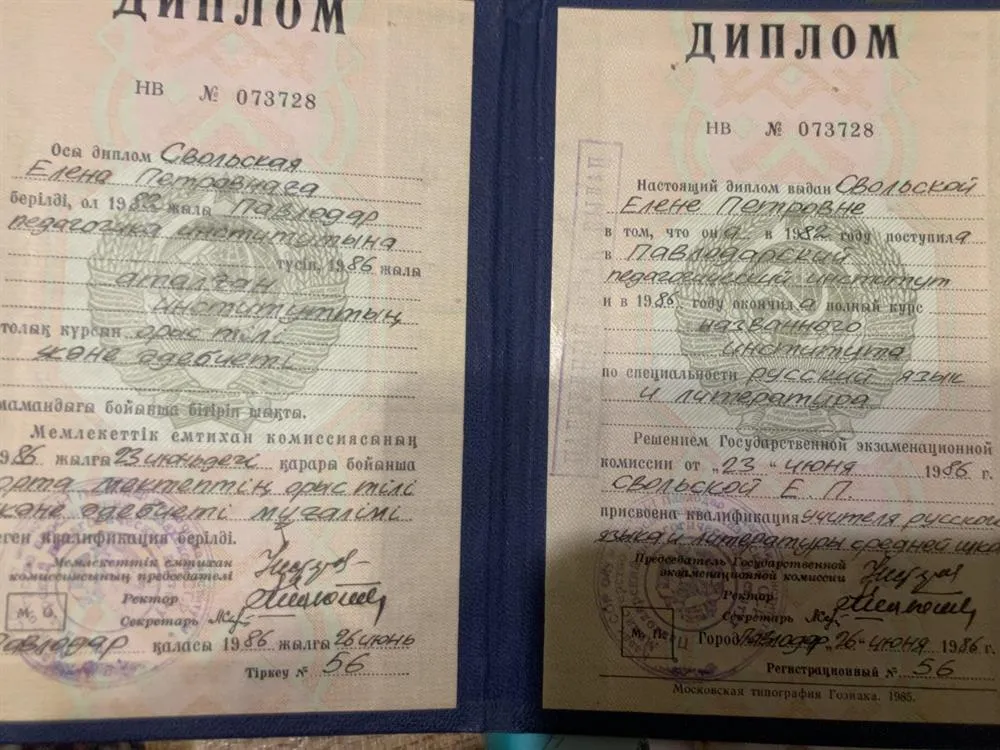 ДИПЛОМ
НВ № 073728
Осы диплом Свольская
Елена Петровнаға
берілді, ол 1982 жылы Павлодар
педагогика институтына
түсіп, 1986 жылы
аталған
институттың
толық курсын орыс тілі
және әдебиеті
мамандығы бойынша бітіріп шықты.
Мемлекеттік емтихан комиссиясының
1986 жылғы 23 июньдегі қарары бойынша
орта мектептің орыс тілі
және әдебиеті мұғалімі
деген квалификация берілді.
Мемлекеттік емтихан
комиссиясының председателі
Ректор
Секретарь
М. О.
Павлодар қаласы 1986 жылғы 26 июнь
Тіркеу № 56
ДИПЛОМ
НВ № 073728
Настоящий диплом выдан Свольской
Елене Петровне
в том, что она в 1982 году поступила
в Павлодарский
педагогический институт
и в 1986 году окончила полный курс
названного
института
по специальности русский язык
и литература
Решением Государственной экзаменационной
комиссии от „23“ июня 1986 г.
Свольской Е. П.
присвоена квалификация учителя русского
языка и литературы средней шко
Председатель Государственной
экзаменационной комиссии
Ректор
Секретарь
М. П. Город Павлодар „26“ июня 1986 г.
Регистрационный № 56
Московская типография Гознака. 1985.